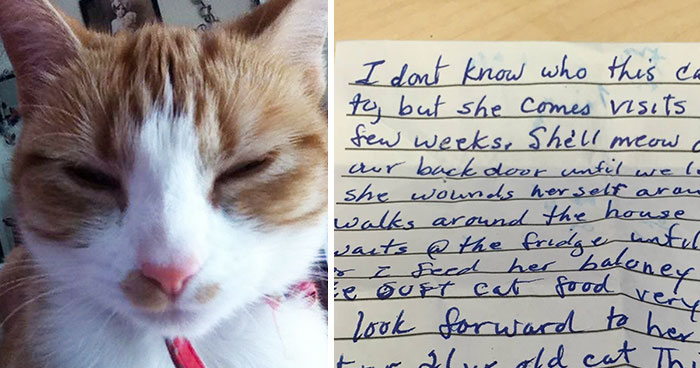 I dont know who this ca
to, but she comes visits
few weeks. She'll meow
our back door until we l
she wounds herself arou
walks around the house
waits @ the fridge until
I feed her baloney
cat food very
look forward to her
old cat Thi